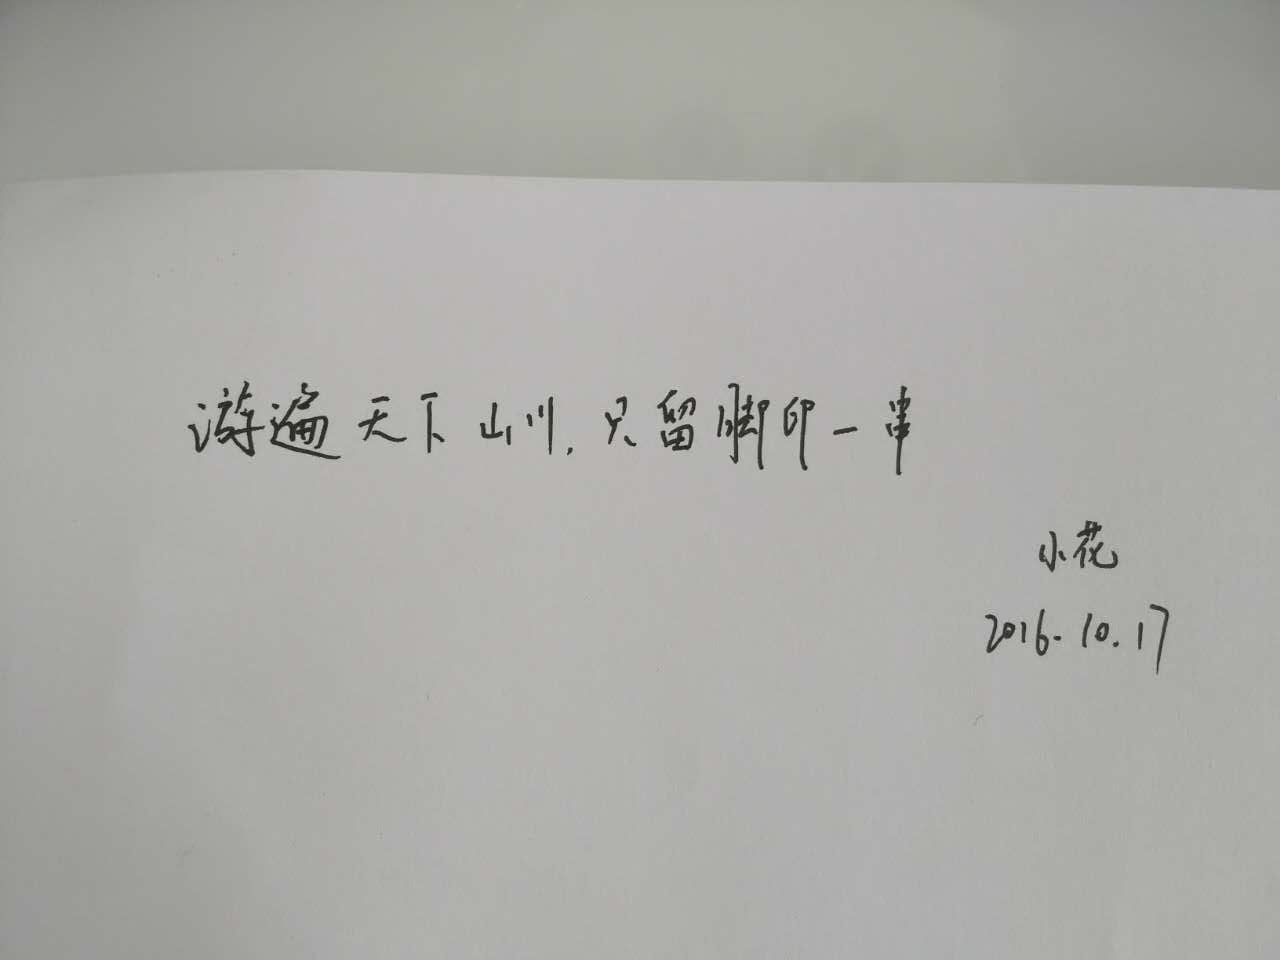 游遍天下山川,只留脚印一串
小花
2016.10.17